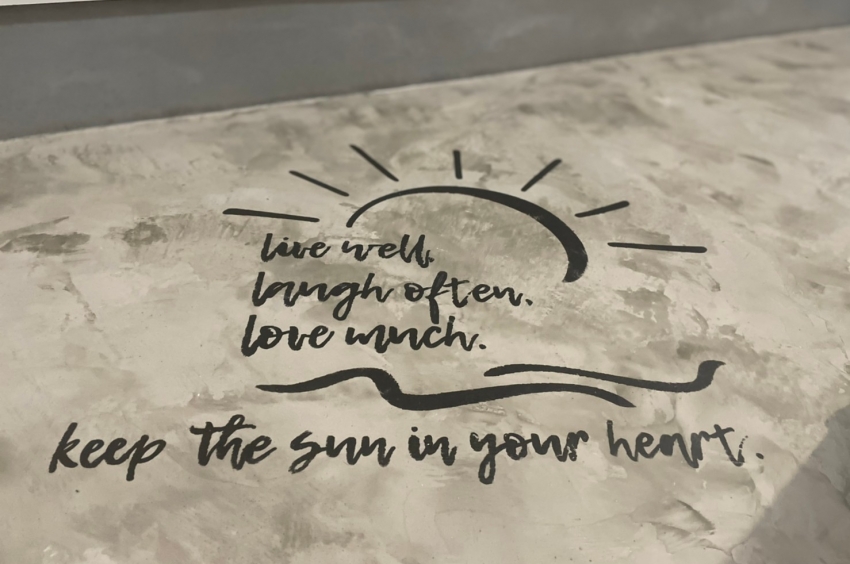 live well,
laugh often.
love much.
keep the sun in your heart.